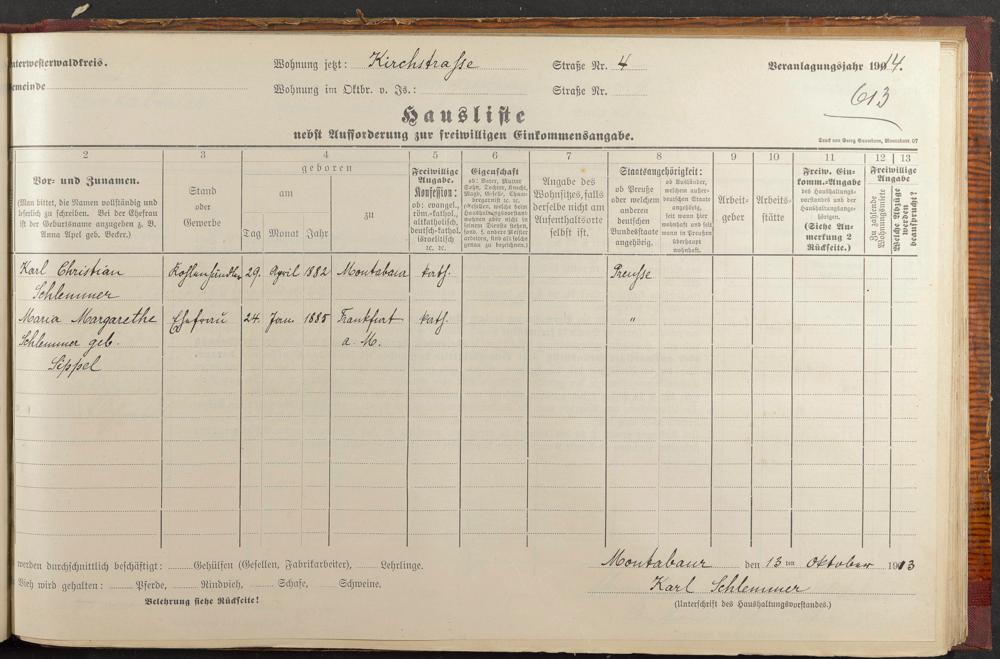 Unterwesterwaldkreis. Wohnung jetzt: Kirchstrasse Straße Nr. 4 Veranlagungsjahr 1914.
Gemeinde Wohnung im Oktbr. v. Js.: Straße Nr.
613
Hausliste
nebst Aufforderung zur freiwilligen Einkommensangabe.
Druck von Georg Sauerborn, Montabaur. 07
2 3 4 5 6 7 8 9 10 11 12 13
Vor- und Zunamen.
(Man bittet, die Namen vollständig und
leserlich zu schreiben. Bei der Ehefrau
ist der Geburtsname anzugeben z. B.
Anna Apel geb. Becker.)
Stand
oder
Gewerbe
geboren
am
Tag Monat Jahr
zu
Freiwillige
Angabe.
Konfession:
ob: evangel.,
röm.-kathol.,
altkatholisch,
deutsch-kathol.
israelitisch
ec. ec.
Eigenschaft
ob: Vater, Mutter
Sohn, Tochter, Knecht,
Magd, Geselle, Cham-
bregarnist ec. ec.
(Gesellen, welche beim
Haushaltungsvorstand
wohnen aber nicht in
seinem Dienste stehen,
sond. f. andere Meister
arbeiten, sind als solche
genau zu bezeichnen.)
Angabe des
Wohnsitzes, falls
derselbe nicht am
Aufenthaltsorte
selbst ist.
Staatsangehörigkeit:
ob Preuße
oder welchem
anderen
deutschen
Bundesstaate
angehörig.
ob Ausländer,
welchem außer-
deutschen Staate
angehörig,
seit wann hier
wohnhaft und seit
wann in Preußen
überhaupt
wohnhaft.
Arbeit-
geber
Arbeits-
stätte
Freiw. Ein-
komm.-Angabe
des Haushaltungs-
vorstandes und der
Haushaltungsange-
hörigen.
(Siehe An-
merkung 2
Rückseite.)
Freiwillige
Angabe
Zu zahlende
Wohnungsmiete
Welche Abzüge
werden
beansprucht?
Karl Christian Kohlenhändler 29. April 1882 Montabaur kath. Preusse
Schlemmer
Maria Margarethe Ehefrau 24. Jan. 1885 Frankfurt kath. "
Schlemmer geb. a. M.
Sippel
werden durchschnittlich beschäftigt: Gehülfen (Gesellen, Fabrikarbeiter), Lehrlinge. Montabaur den 13ten Oktober 1913
Vieh wird gehalten: Pferde, Rindvieh, Schafe, Schweine. Karl Schlemmer
Belehrung siehe Rückseite! (Unterschrift des Haushaltungsvorstandes.)